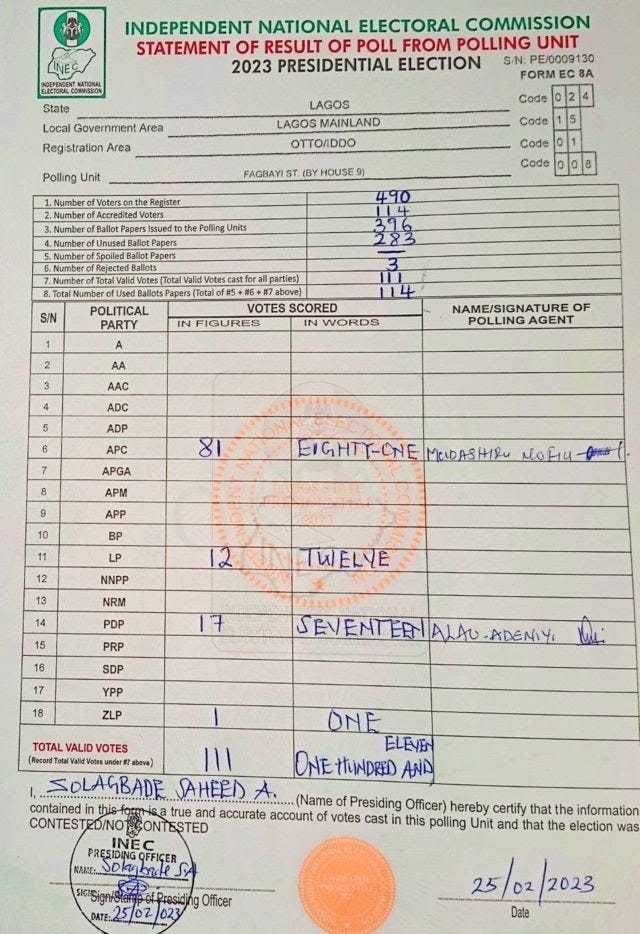 INDEPENDENT NATIONAL ELECTORAL COMMISSION
STATEMENT OF RESULT OF POLL FROM POLLING UNIT
2023 PRESIDENTIAL ELECTION
S/N: PE/0009130
FORM EC 8A
INEC
INDEPENDENT NATIONAL
ELECTORAL COMMISSION
State LAGOS Code 0 2 4
Local Government Area LAGOS MAINLAND Code 1 5
Registration Area OTTO/IDDO Code 0 1
Polling Unit FAGBAYI ST. (BY HOUSE 9) Code 0 0 8
1. Number of Voters on the Register 490
2. Number of Accredited Voters 114
3. Number of Ballot Papers Issued to the Polling Units 396
4. Number of Unused Ballot Papers 283
5. Number of Spoiled Ballot Papers —
6. Number of Rejected Ballots 3
7. Number of Total Valid Votes (Total Valid Votes cast for all parties) 111
8. Total Number of Used Ballots Papers (Total of #5 + #6 + #7 above) 114
S/N POLITICAL PARTY VOTES SCORED NAME/SIGNATURE OF POLLING AGENT
IN FIGURES IN WORDS
1 A
2 AA
3 AAC
4 ADC
5 ADP
6 APC 81 EIGHTY-ONE MUDASHIRU NOFIU
7 APGA
8 APM
9 APP
10 BP
11 LP 12 TWELVE
12 NNPP
13 NRM
14 PDP 17 SEVENTEEN ALAO-ADENIYI
15 PRP
16 SDP
17 YPP
18 ZLP 1 ONE
TOTAL VALID VOTES
(Record Total Valid Votes under #7 above) 111 ONE HUNDRED AND ELEVEN
I, SOLAGBADE SAHEED A. (Name of Presiding Officer) hereby certify that the information
contained in this form is a true and accurate account of votes cast in this polling Unit and that the election was
CONTESTED/NOT CONTESTED
INEC
PRESIDING OFFICER
NAME: Solagbade S.A
SIGN:
Sign/Stamp of Presiding Officer
DATE: 25/02/023
25/02/2023
Date